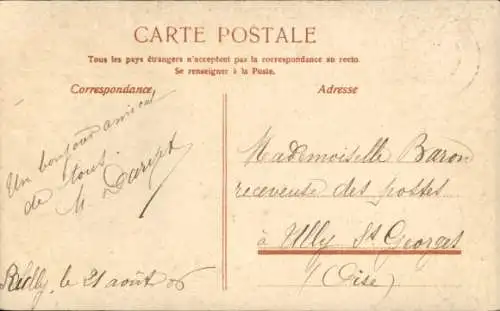 CARTE POSTALE
Tous les pays étrangers n'acceptent pas la correspondance au recto.
Se renseigner à la Poste.
Correspondance
Adresse
Un bonjour amical
de tous.
M.
le 21 août 06
Mademoiselle Baron
receveuse des postes
à Ully St Georges
(Oise)